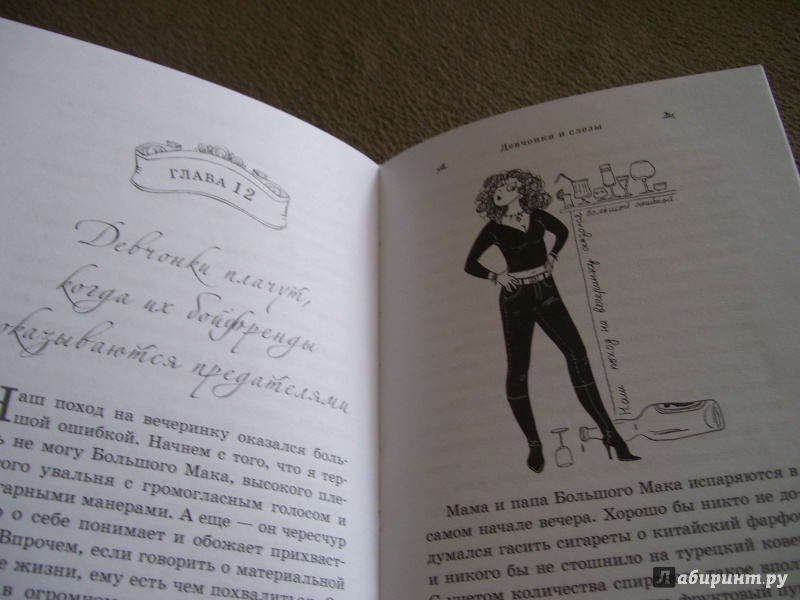 ГЛАВА 12
Девчонки плачут,
когда их бойфренды
оказываются предателями
Наш поход на вечеринку оказался боль-
шой ошибкой. Начнем с того, что я тер-
не могу Большого Мака, высокого пле-
увальня с громогласным голосом и
манерами. А еще — он чересчур
о себе понимает и обожает прихваст-
Впрочем, если говорить о материальной
жизни, ему есть чем похвалиться.
в огромном
Девчонки и слезы
Наш поход на вечеринку оказался
большой ошибкой.
Мама и папа Большого Мака испаряются в
самом начале вечера. Хорошо бы никто не до-
думался гасить сигареты о китайский фарфо
и никого бы не стошнило на турецкий кове
С учетом количества такое впол
фруктовый
Лабиринт.ру